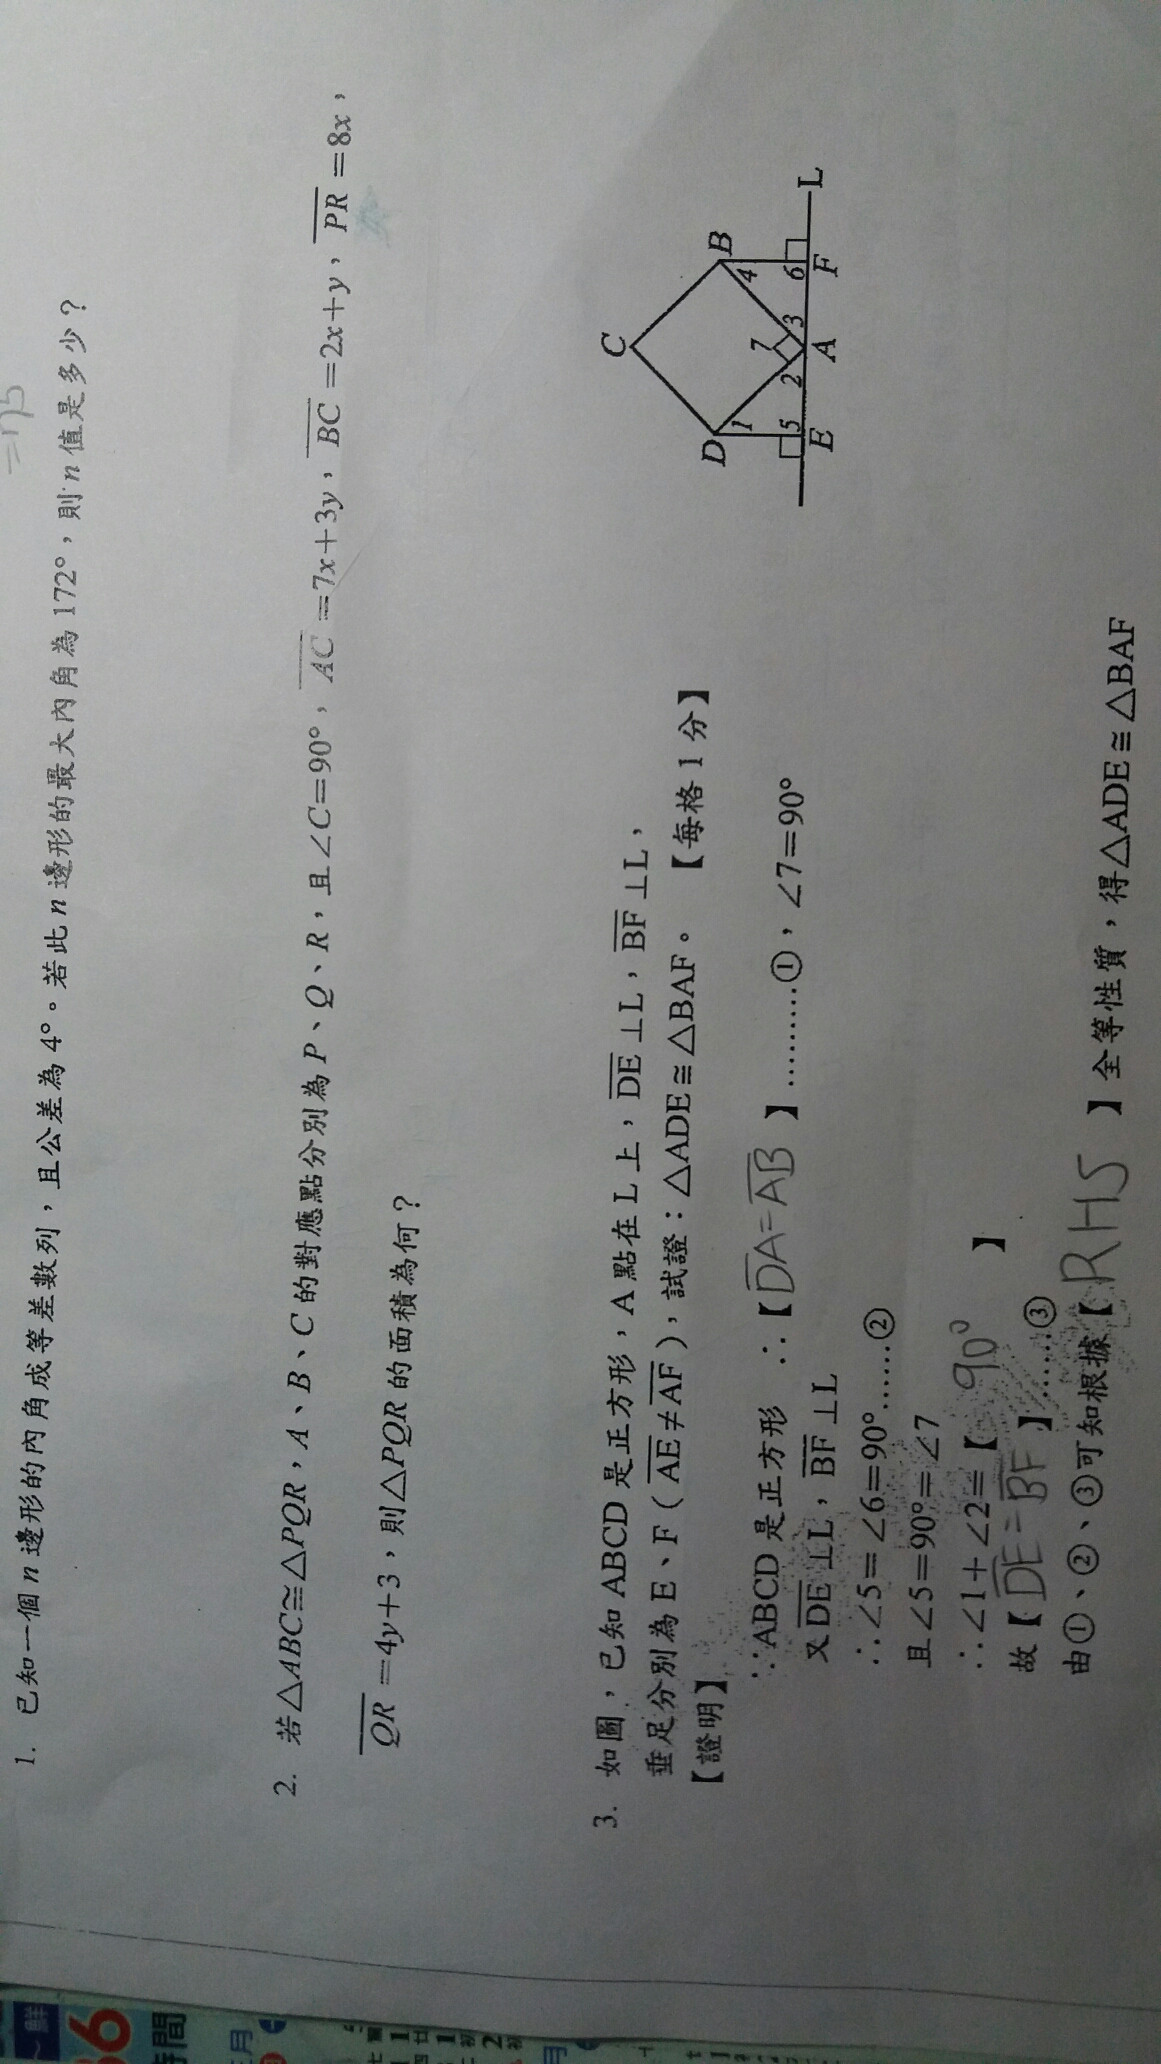 =175
1. 已知一個 n 邊形的內角成等差數列，且公差為 4°。若此 n 邊形的最大內角為 172°，則 n 值是多少？
2. 若△ABC≅△PQR，A、B、C 的對應點分別為 P、Q、R，且∠C=90°，AC=7x+3y，BC=2x+y，PR=8x，
QR=4y+3，則△PQR 的面積為何？
3. 如圖，已知 ABCD 是正方形，A 點在 L 上，DE⊥L，BF⊥L，
垂足分別為 E、F（AE≠AF），試證：△ADE≅△BAF。【每格 1 分】
【證明】
∵ABCD 是正方形 ∴【DA=AB】..........①，∠7=90°
又DE⊥L，BF⊥L
∴∠5=∠6=90°......②
且∠5=90°=∠7
∴∠1+∠2=【 90° 】
故【DE=BF】......③
由①、②、③可知根據【RHS】全等性質，得△ADE≅△BAF
C
D
B
1
7
4
5
2
3
6
E
A
F
L
鮮
6
時間
月